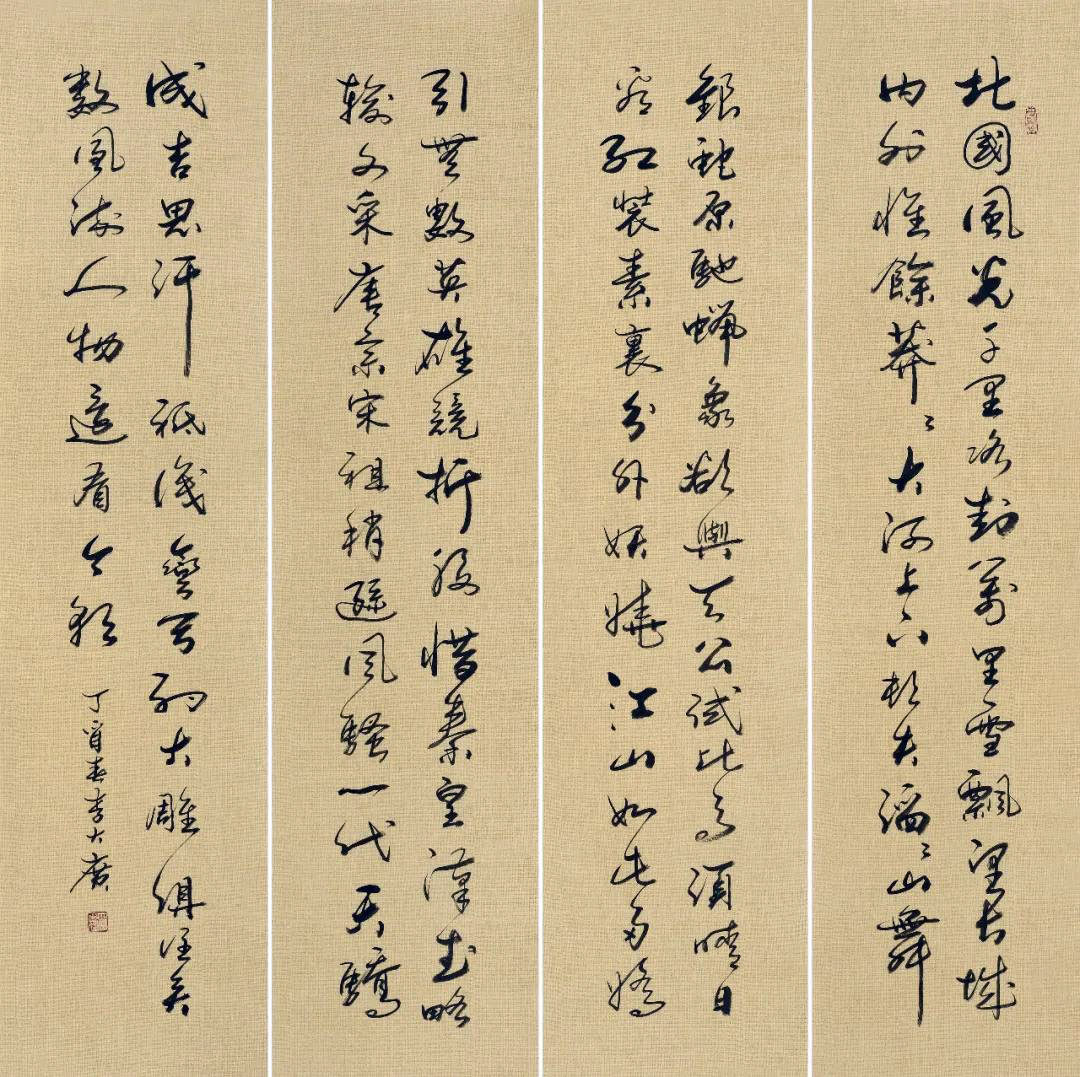 北國風光千里冰封萬里雪飄望長城
内外惟餘莽々大河上下頓失滔々山舞
銀蛇原馳蠟象欲與天公試比高須晴日
看紅裝素裹分外妖嬈江山如此多嬌
引無數英雄競折腰惜秦皇漢武略
輸文采唐宗宋祖稍遜風騷一代天驕
成吉思汗祇識彎弓射大雕俱往矣
數風流人物還看今朝 丁酉春李大